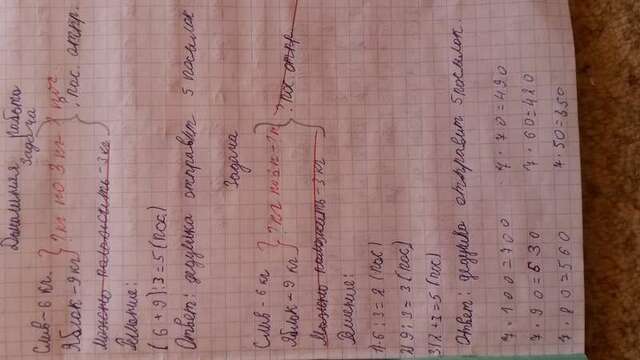 Домашняя работа
Задача
Слив-6 кг. } ?кг по 3 кг } ? пос. отпр.
Яблок-9 кг
Можно положить-3 кг
Решение:
(6+9):3=5(пос)
Ответ: дедушка отправит 5 посылок
Задача
Слив-6 кг } ?кг по 3 кг-1п } ? пос. отпр
Яблок-9 кг
Можно положить-3 кг
Решение:
1.6:3=2(пос)
2)9:3=3(пос)
3)2+3=5(пос)
Ответ: дедушка отправит 5 посылок.
7·100=700 7·70=490
7·90=630 7·60=420
7·80=560 7·50=350